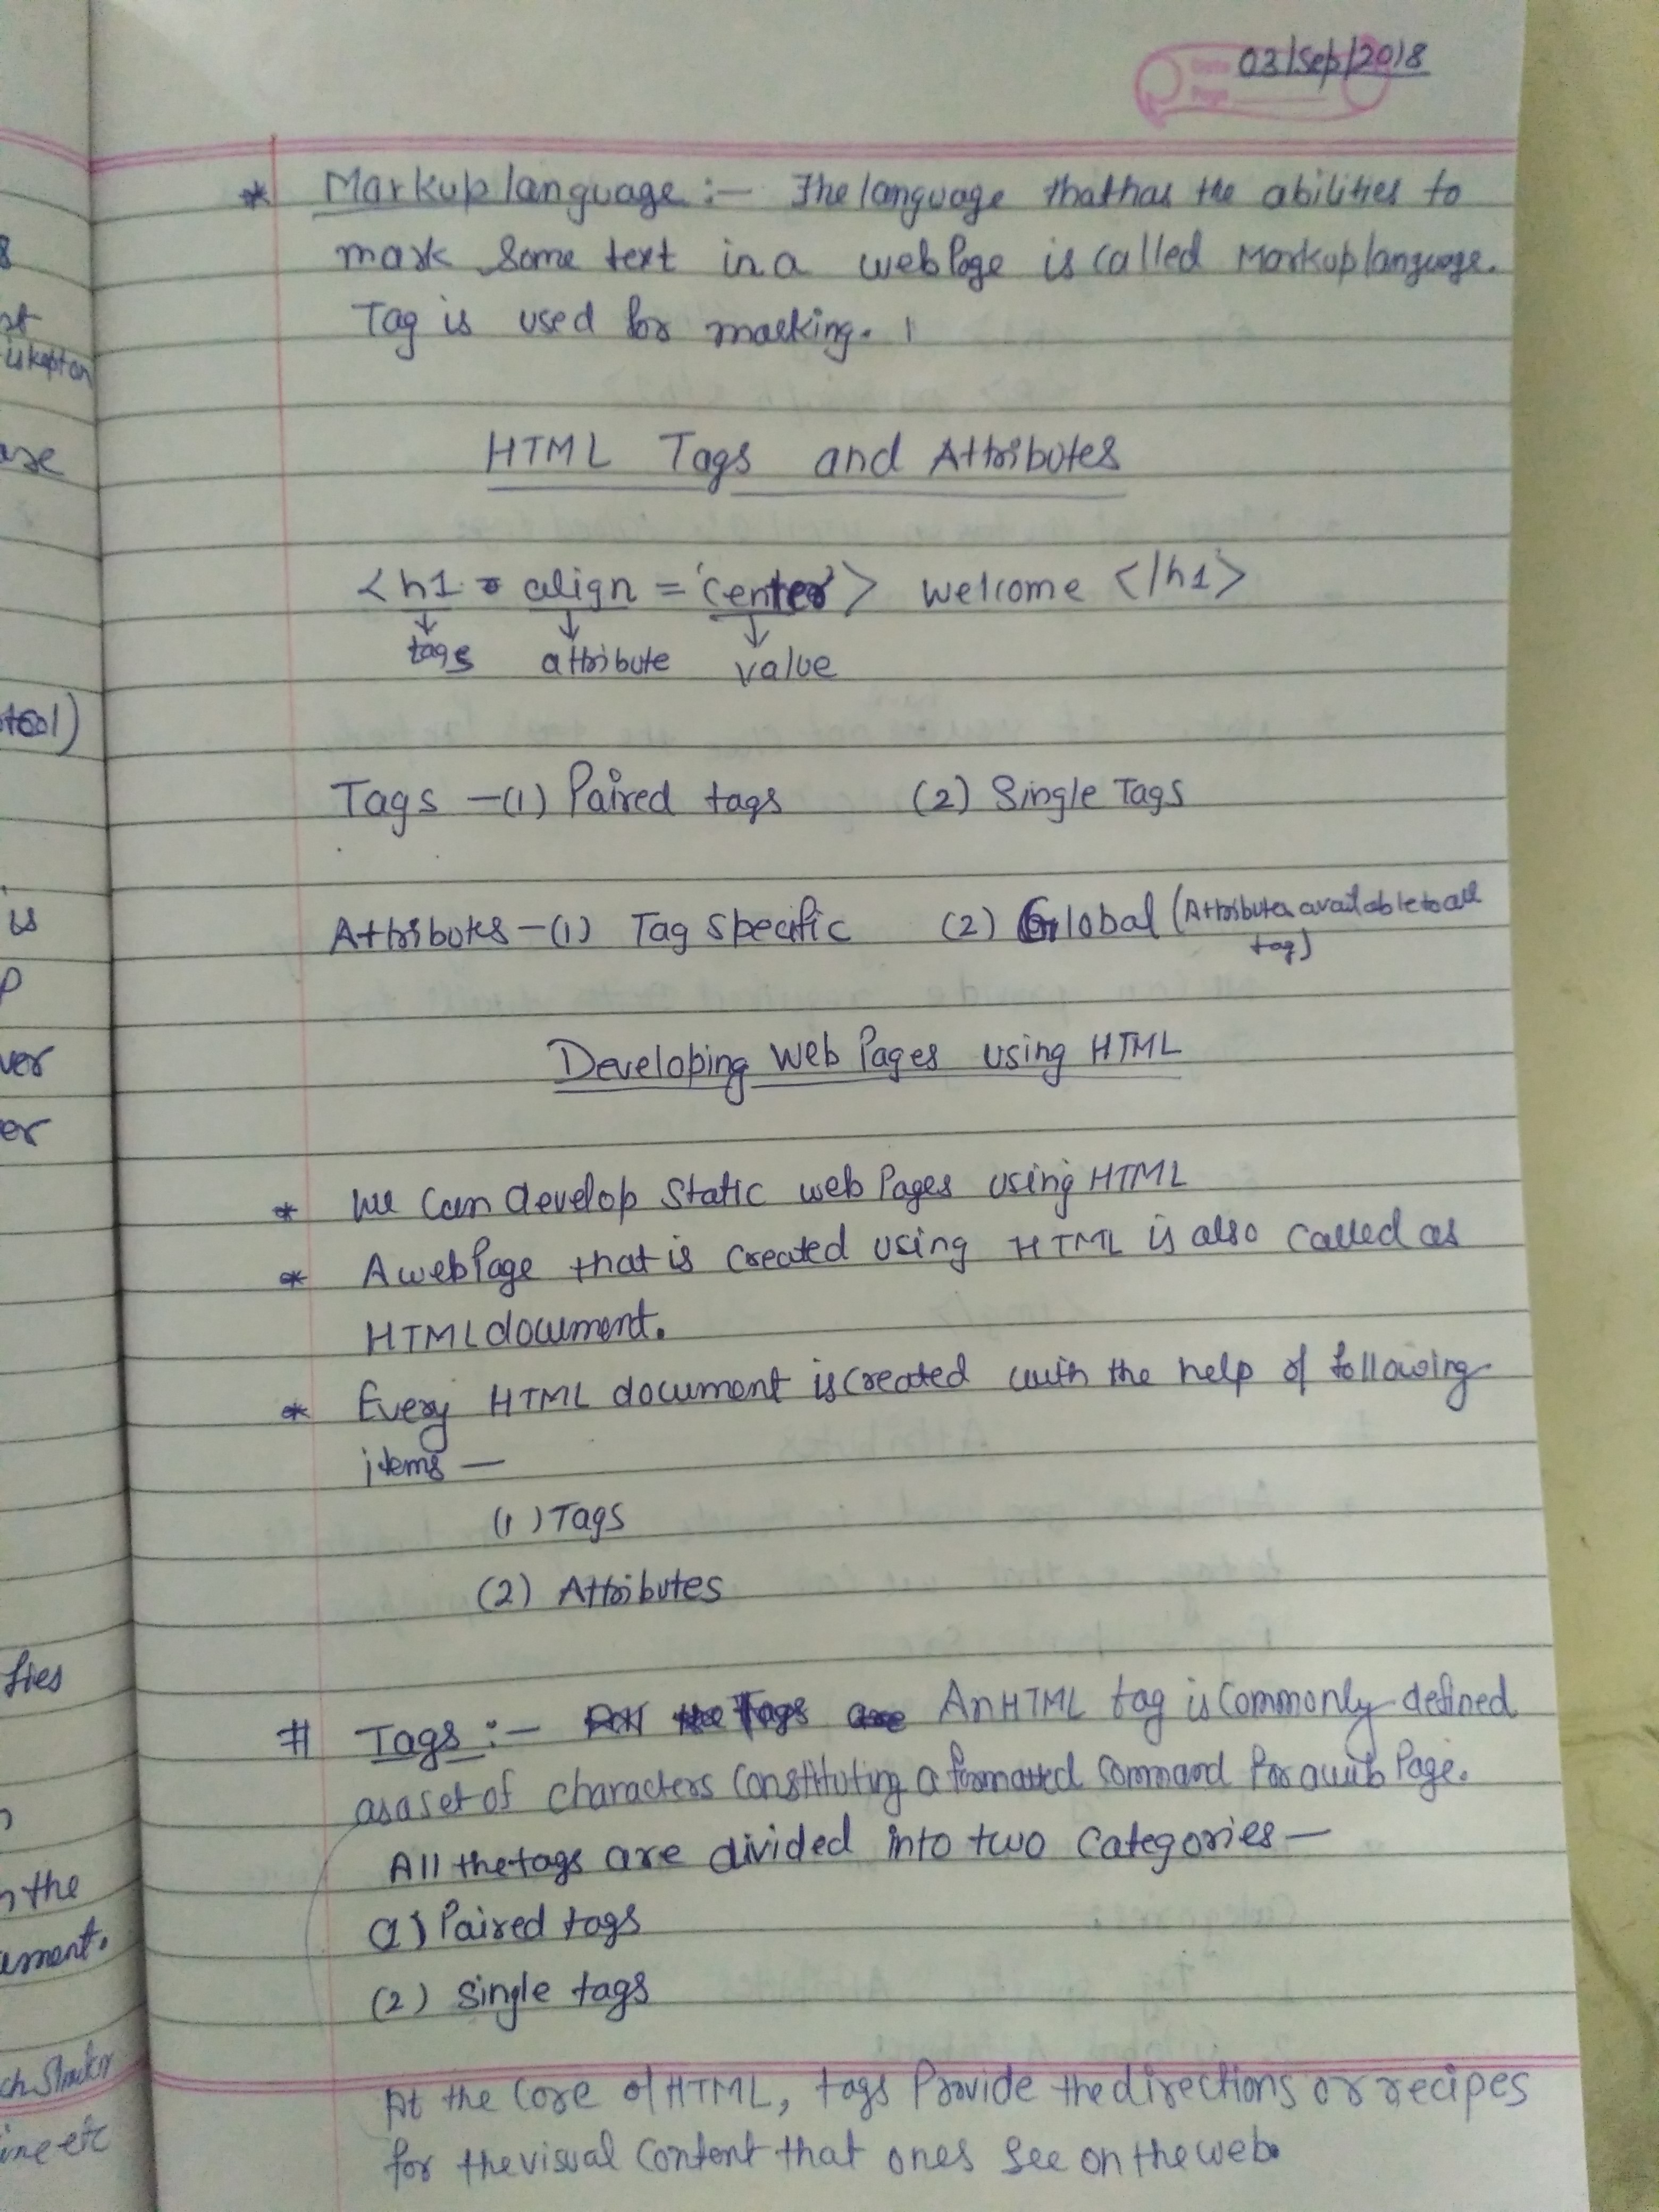 03/Sep/2018
* Markup language :- The language that has the abilities to
mark some text in a web Page is called Markup language.
Tag is used for marking.
HTML Tags and Attributes
<h1 align = 'center'> welcome </h1>
tags attribute value
Tags -(1) Paired tags (2) Single Tags
Attributes -(1) Tag specific (2) Global (Attributes available to all
tag)
Developing Web Pages using HTML
* We Can develop Static web Pages using HTML
* A web Page that is created using HTML is also called as
HTML document.
* Every HTML document is created with the help of following
items —
(1) Tags
(2) Attributes
# Tags :- An HTML tag is commonly defined
as a set of characters constituting a formatted command for a web Page.
All the tags are divided into two categories —
(1) Paired tags
(2) Single tags
At the core of HTML, tags Provide the directions or recipes
for the visual content that ones see on the web.
8
is kept on
tool)
is
ver
er
n the
ument.
ine etc